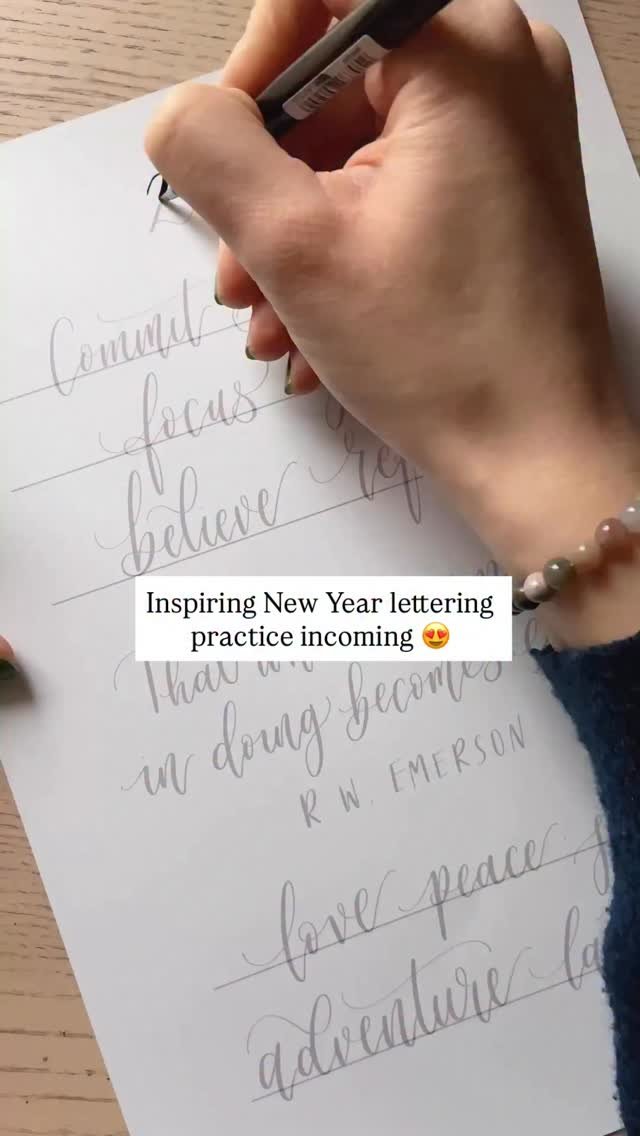 Commit
focus
believe
Inspiring New Year lettering
practice incoming 😍
That
in doing becomes
R W. EMERSON
love peace
adventure